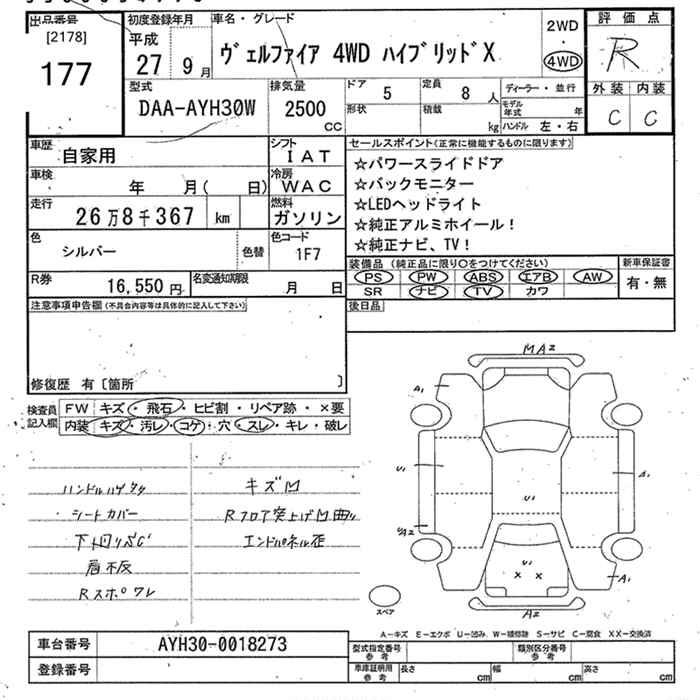 出品番号
[2178]
177
初度登録年月
平成
27 9月
車名・グレード
ヴェルファイア 4WD ハイブリッドX
2WD
・
4WD
評価点
R
外装 内装
C C
型式
DAA-AYH30W
排気量
2500
CC
ドア
5
定員
8 人
形状
積載
kg
ディーラー・並行
モデル年式 年
ハンドル 左・右
車歴
自家用
シフト
I A T
車検
年 月( 日)
冷房
W A C
走行
26万8千367 km
燃料
ガソリン
色
シルバー
色替
色コード
1F7
R券
16,550 円
名変通知期限
月 日
セールスポイント(正常に機能するものに限ります)
☆パワースライドドア
☆バックモニター
☆LEDヘッドライト
☆純正アルミホイール!
☆純正ナビ、TV!
装備品(純正品に限り○をつけてください)
PS PW ABS エアB AW
SR ナビ TV カワ
新車保証書
有・無
後日品
注意事項申告欄(不具合内容等は具体的に記入して下さい)
修復歴 有〔箇所 〕
検査員記入欄
FW キズ・飛石・ヒビ割・リペア跡・×要
内装 キズ・汚レ・コゲ・穴・スレ・キレ・破レ
シートカバー
キズ凹
Rフロア突上げ凹曲り
エンドパネル歪
MA2
A1
U1
A1
U1
U1
× ×
A1
A2
スペア
A-キズ E-エクボ U-凹み W-補修跡 S-サビ C-腐食 XX-交換済
車台番号
AYH30-0018273
登録番号
型式指定番号
参考
類別区分番号
参考
車庫証明用
参考
長さ cm
幅 cm
高さ cm